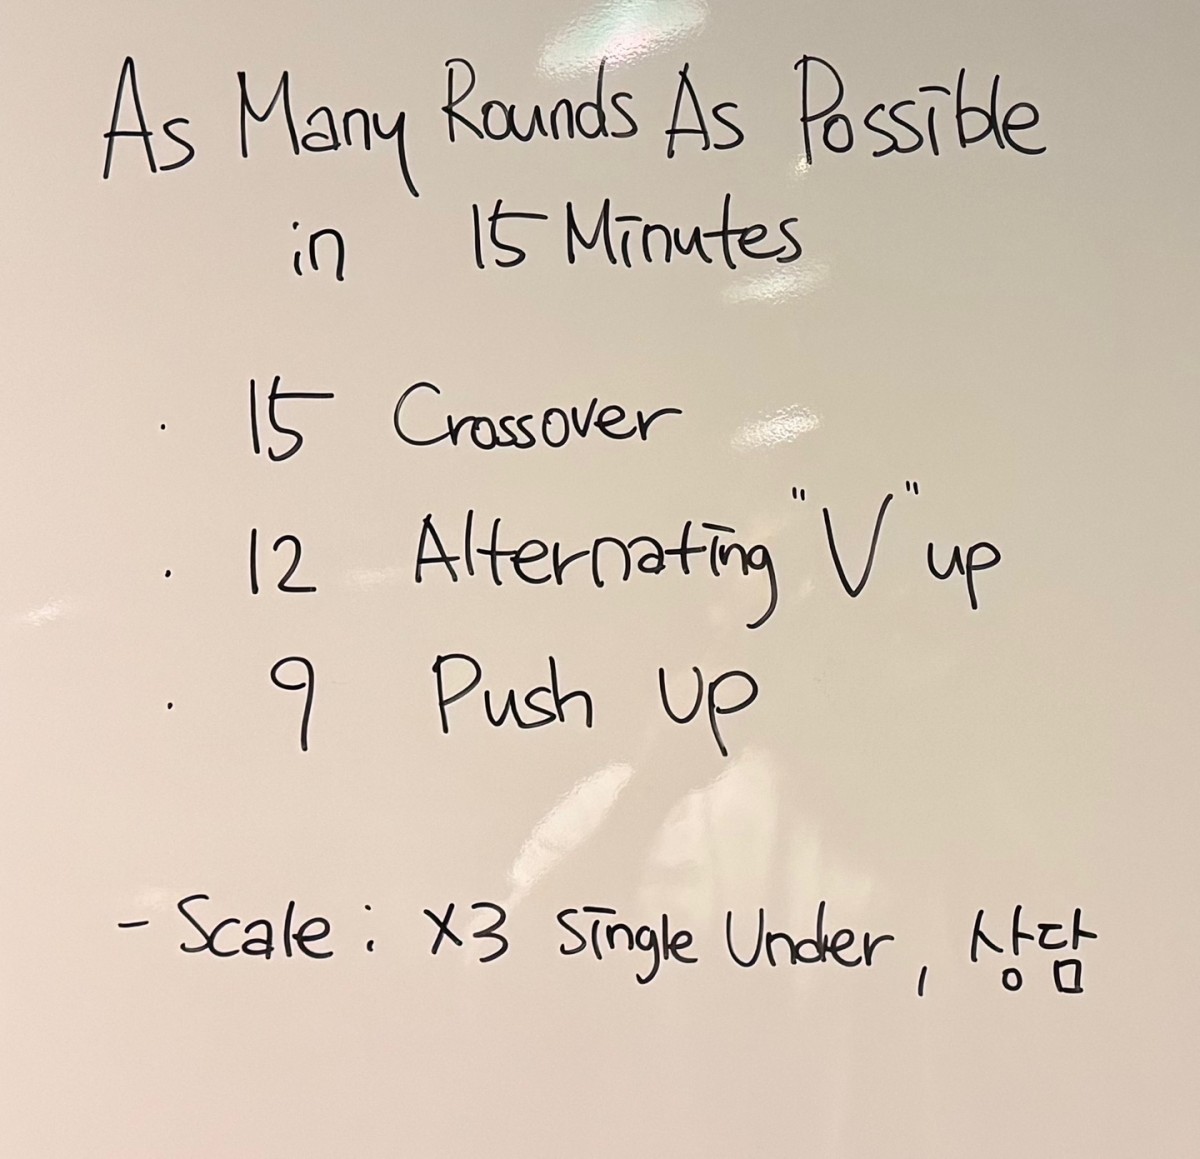 As Many Rounds As Possible
in 15 Minutes
· 15 Crossover
· 12 Alternating "V" up
· 9 Push up
- Scale : x3 Single Under, 상담